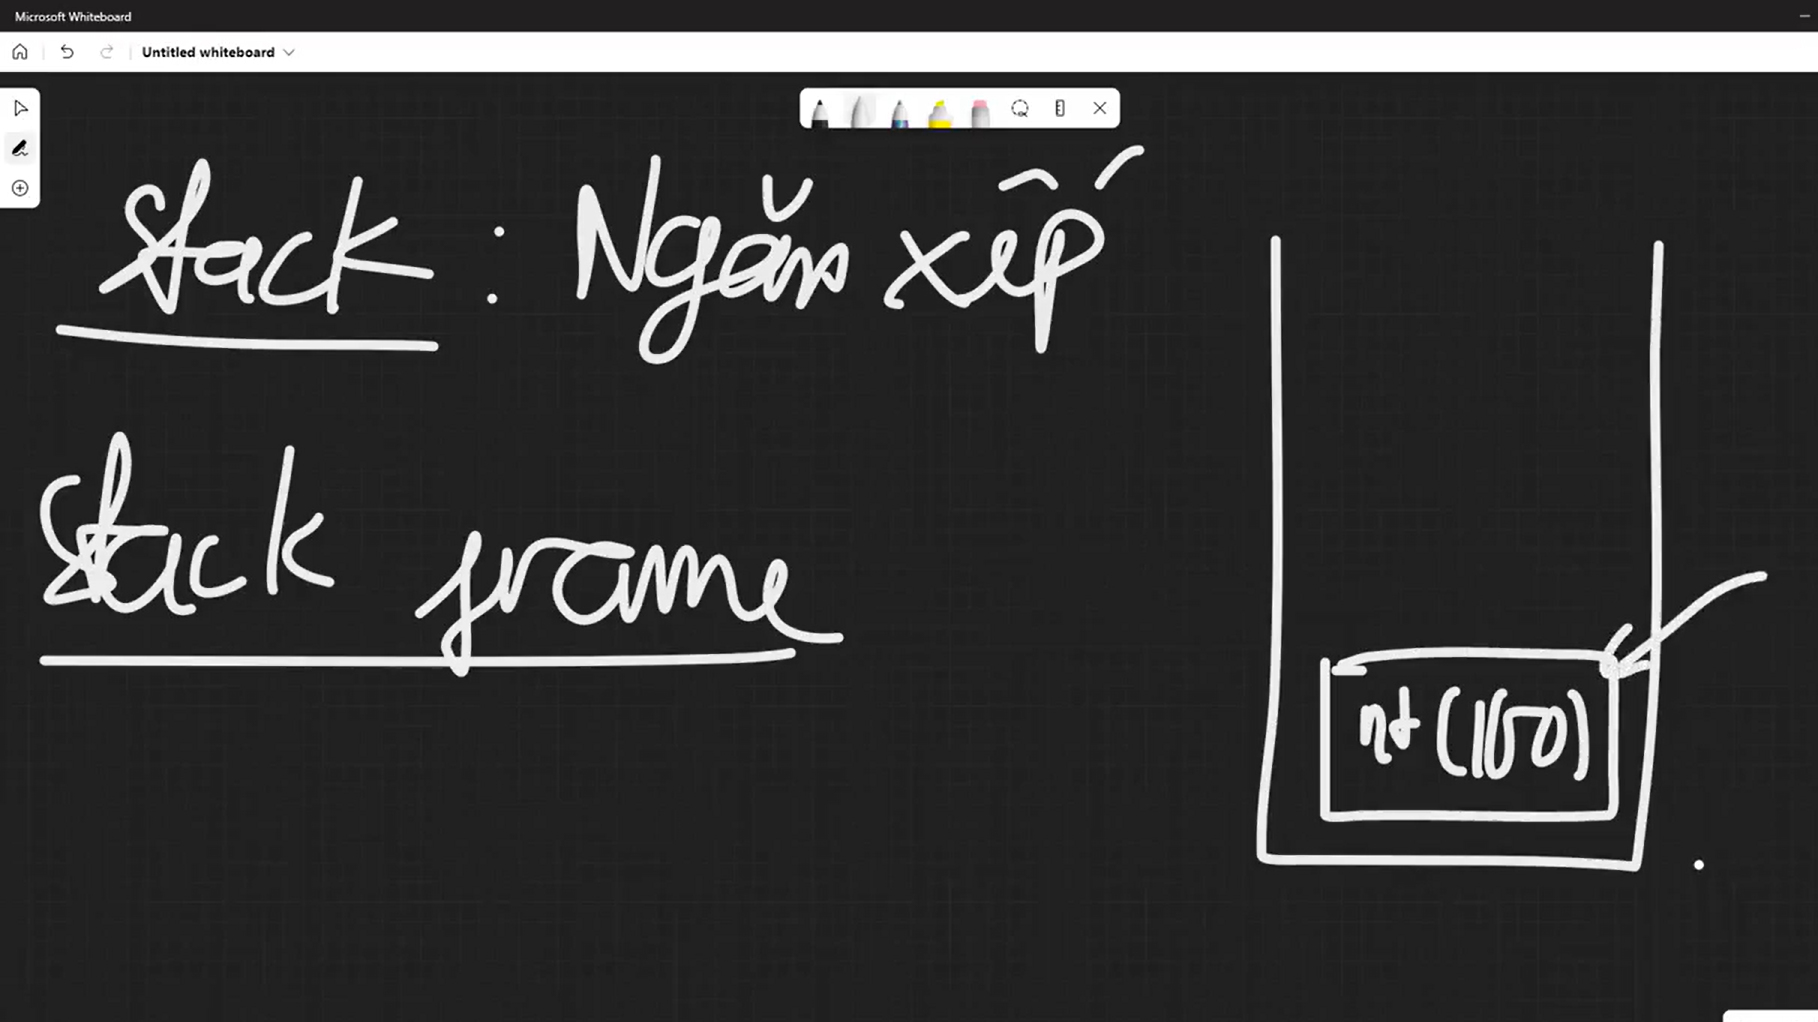 Microsoft Whiteboard
Untitled whiteboard
Stack : Ngăn xếp
Stack frame
nt (100)